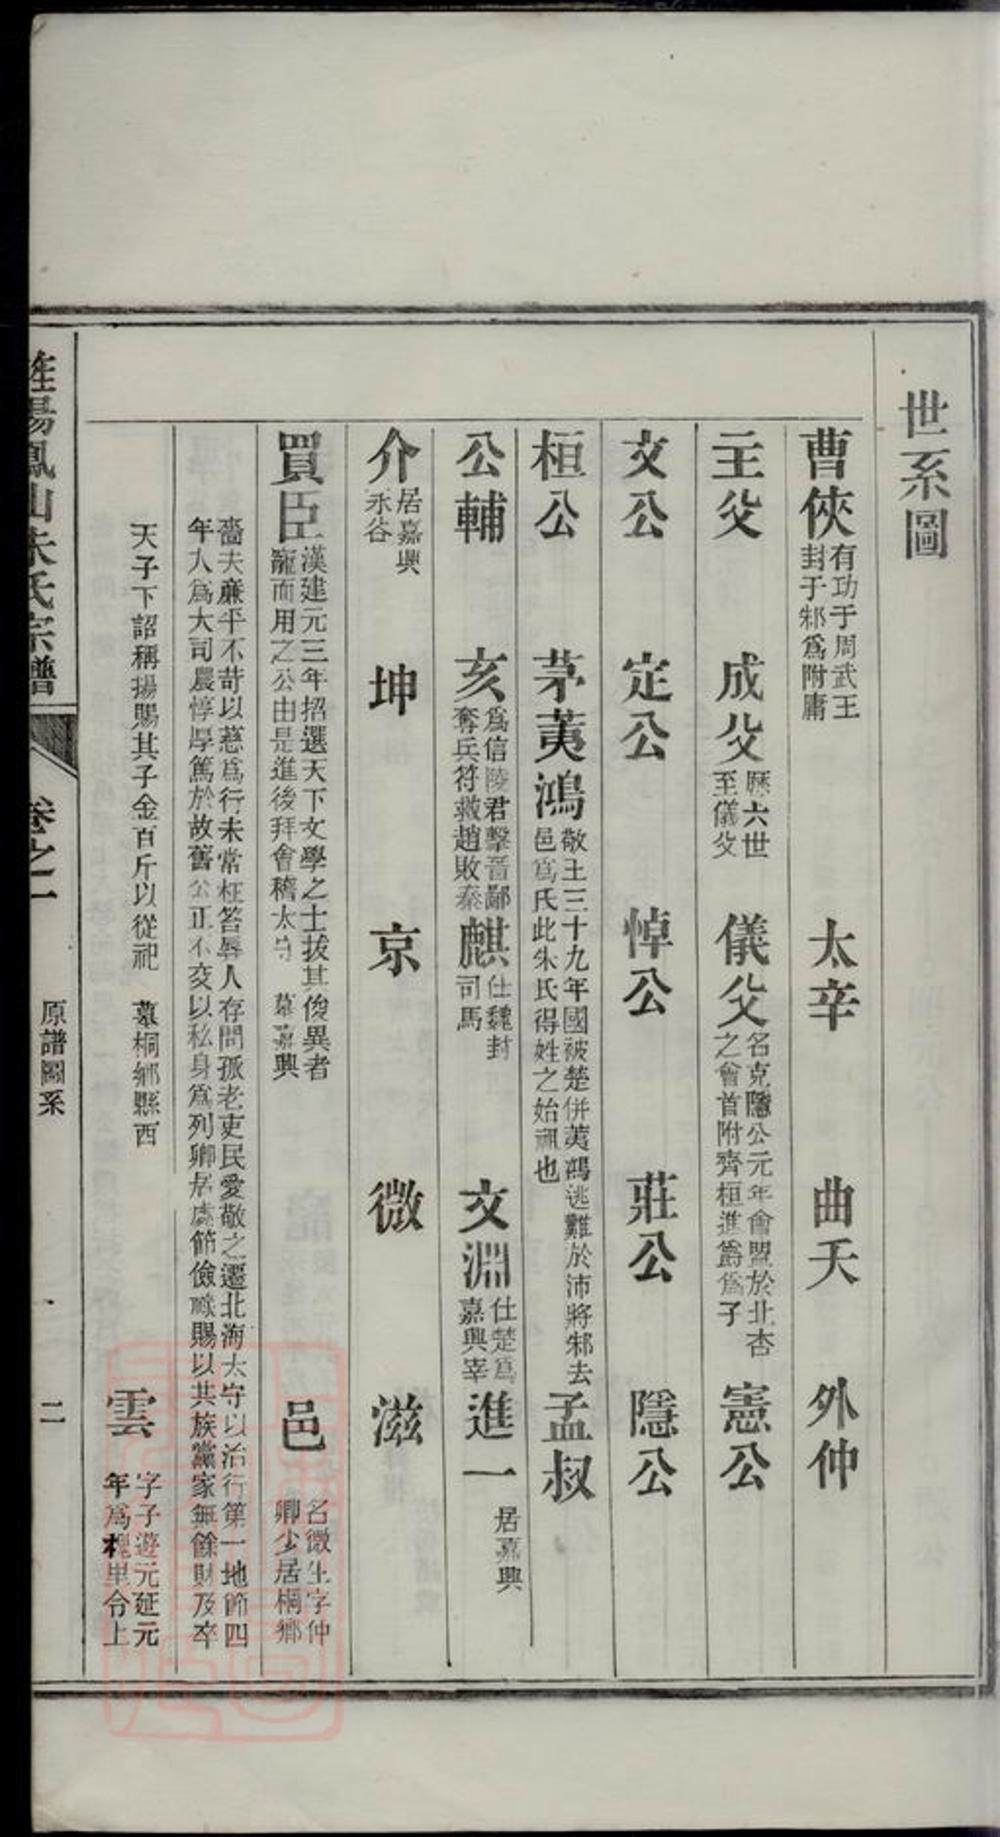 世系圖
曹俠 有功于周武王封于邾爲附庸 太辛 曲夭 外仲
主父 成父 歷六世至儀父 儀父 名克隱公元年會盟於北杏之會首附齊桓進爵爲子 憲公
文公 定公 悼公 莊公 隱公
桓公 茅荑鴻 敬王三十九年國被楚併荑鴻逃難於沛將邾去邑爲氏此朱氏得姓之始祖也 孟叔
公輔 亥 爲信陵君擊晉鄙奪兵符救趙敗秦 麒 仕魏封司馬 文淵 仕楚爲嘉興宰 進一 居嘉興
介 居嘉興永谷 坤 京 微 滋
買臣 漢建元三年招選天下文學之士拔其俊異者寵而用之公由是進後拜會稽太守 墓嘉興 邑 名微生字仲卿少居桐鄉
嗇夫廉平不苛以慈爲行未常枉笞辱人存問孤老吏民愛敬之遷北海太守以治行第一地節四
年入爲大司農惇厚篤於故舊公正不交以私身爲列卿居處節儉祿賜以共族黨家無餘財及卒
天子下詔稱揚賜其子金百斤以從祀 墓桐鄉縣西 雲 字子遊元延元年爲槐里令上
旌陽鳳山朱氏宗譜 卷之一 原譜圖系 二